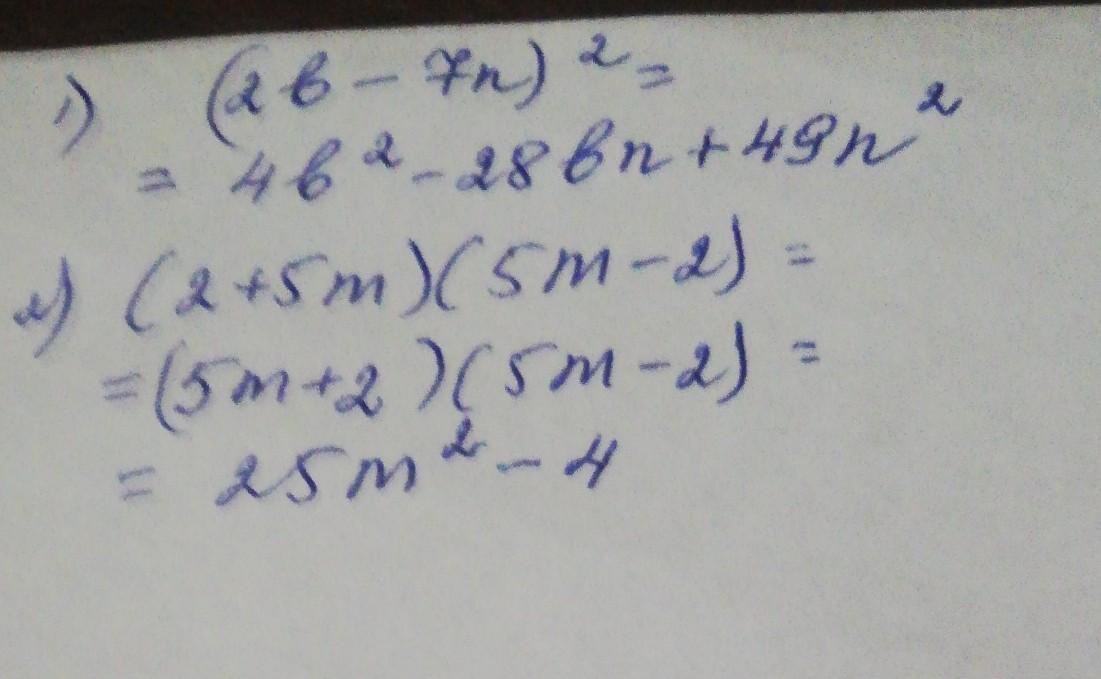 1) (2b - 7n)² =
= 4b² - 28bn + 49n²
2) (2 + 5m)(5m - 2) =
= (5m + 2)(5m - 2) =
= 25m² - 4